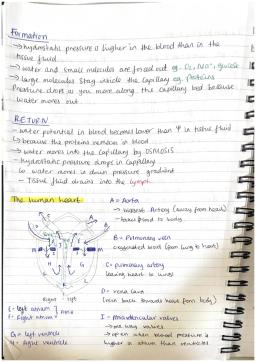 Formation
→ hydrostatic pressure is higher in the blood than in the
tissue fluid
→ water and small molecules are forced out eg. O2, Na+, glucose
→ large molecules stay inside the capillary eg. proteins
Pressure drops as you move along the capillary bed because
water moves out.
RETURN
- water potential in blood becomes lower than Ψ in tissue fluid
↳ because the proteins remain in blood
- water moves into the capillary by OSMOSIS
- hydrostatic pressure drops in capillary
so water moves in down pressure gradient
- Tissue fluid drains into the lymph.
The human heart
A = Aorta
→ largest Artery (away from heart)
B = Pulmonary vein
oxygenated blood (from lung to heart)
C = pulmonary artery
leaving heart to lungs
D = vena cava
(vein back towards heart from body)
right
left
E = left atrium
F = Right atrium
Atria
G = left ventricle
H = Right ventricle
I = Atrioventricular valves
→ one way valves
→ open when blood pressure is
higher in atrium than ventricles